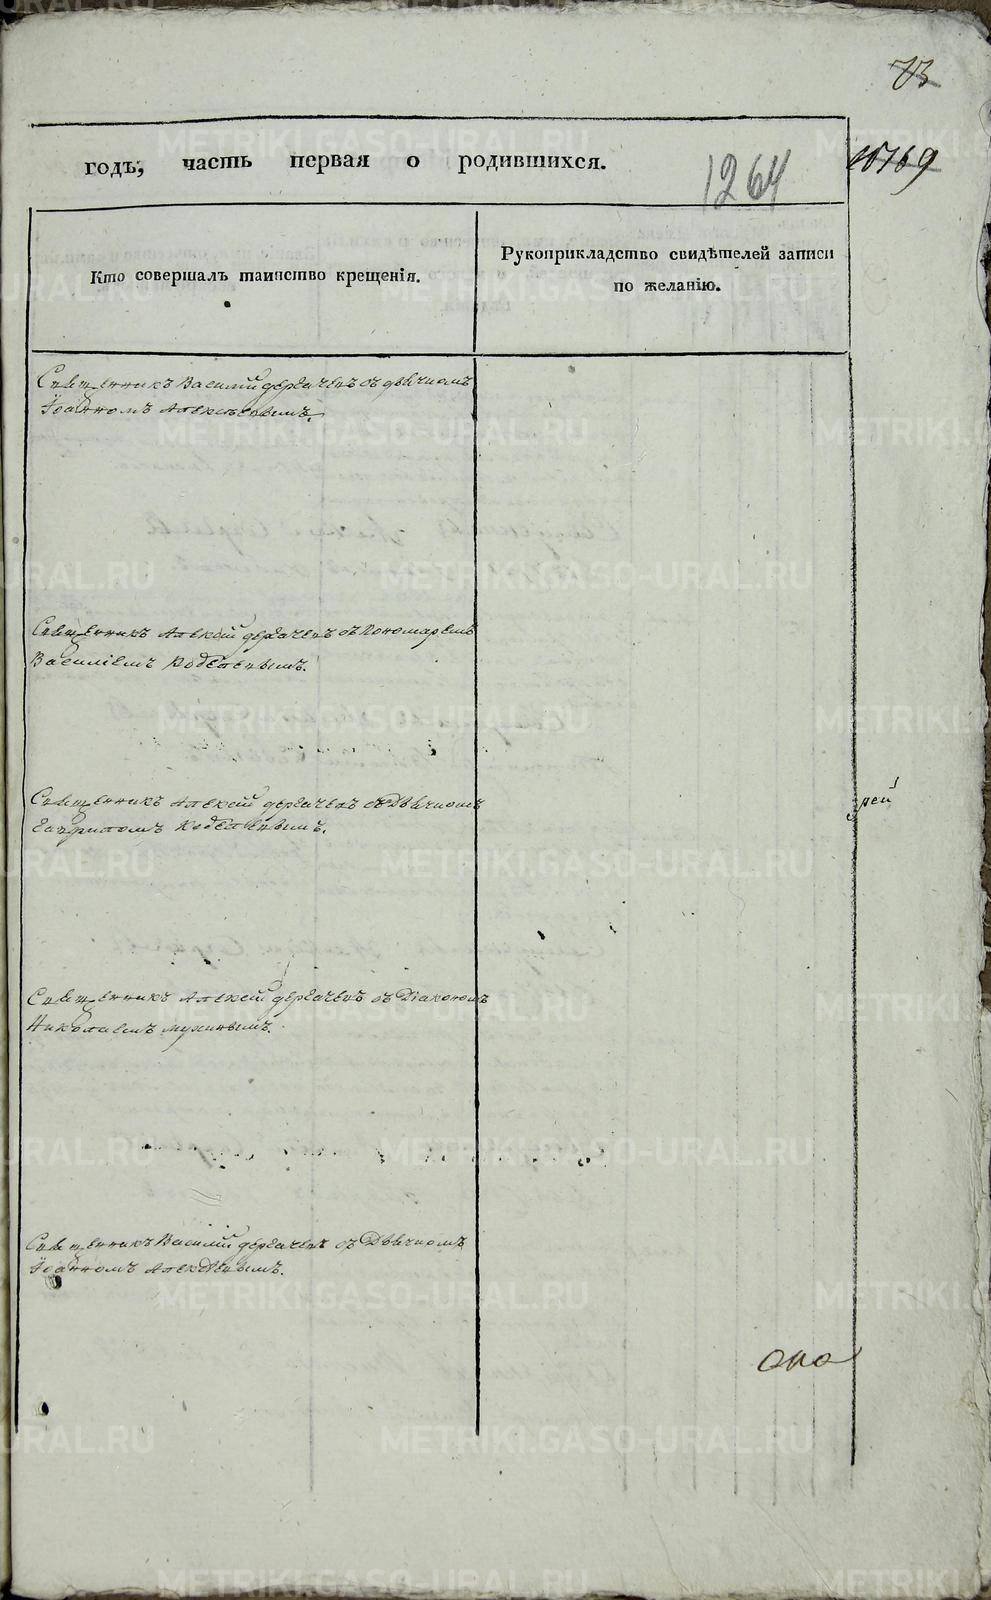 73
годъ, часть первая о родившихся.
1264
169
Кто совершалъ таинство крещенія.
Рукоприкладство свидѣтелей записи
по желанію.
Священникъ Василий Дергачевъ съ дьячкомъ
Іоанномъ Алексѣевымъ.
Священникъ Алексій Дергачевъ съ Пономаремъ
Василіемъ
Священникъ Алексій Дергачевъ съ Дьячкомъ
Гавриломъ
Священникъ Алексій Дергачевъ съ Діакономъ
Николаемъ Мухинымъ.
Священникъ Василій Дергачевъ съ Дьячкомъ
Іоанномъ Алексѣевымъ.
рей
METRIKI.GASO-URAL.RU